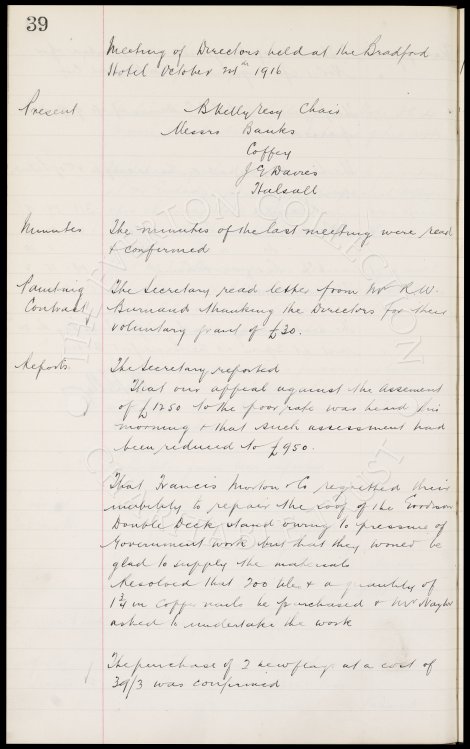 39
Meeting of Directors held at the Bradford
Hotel October 1916
Present B Kelly Esq Chair
Messrs Banks
Coffey
J E Davies
Halsall
Minutes The minutes of the last meeting were read
& confirmed
Painting The Secretary read letter from Mr R. W.
Contract Burnand thanking the Directors for their
voluntary grant of £30.
Reports The Secretary reported
That our appeal against the assesment
of £1250 to the poor rate was heard this
morning & that such assessment had
been reduced to £950.
That Francis Morton & Co regretted their
inability to repair the roof of the Goodison
Double Deck stand owing to pressure of
Government work but that they would be
glad to supply the materials
Resolved that 200 tiles & a quantity of
1¾ in Copper nails be purchased & Mr Naylor
asked to undertake the work
The purchase of 2 new flags at a cost of
39/3 was confirmed
THE EVERTON COLLECTION